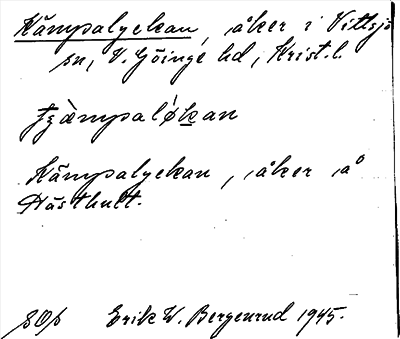 Kämpalyckan, åker i Vittsjö
sn, V. Göinge hd, Krist. l.
Kämpalyckan, åker å
Hästhult.
Erik W. Bergenrud 1945.